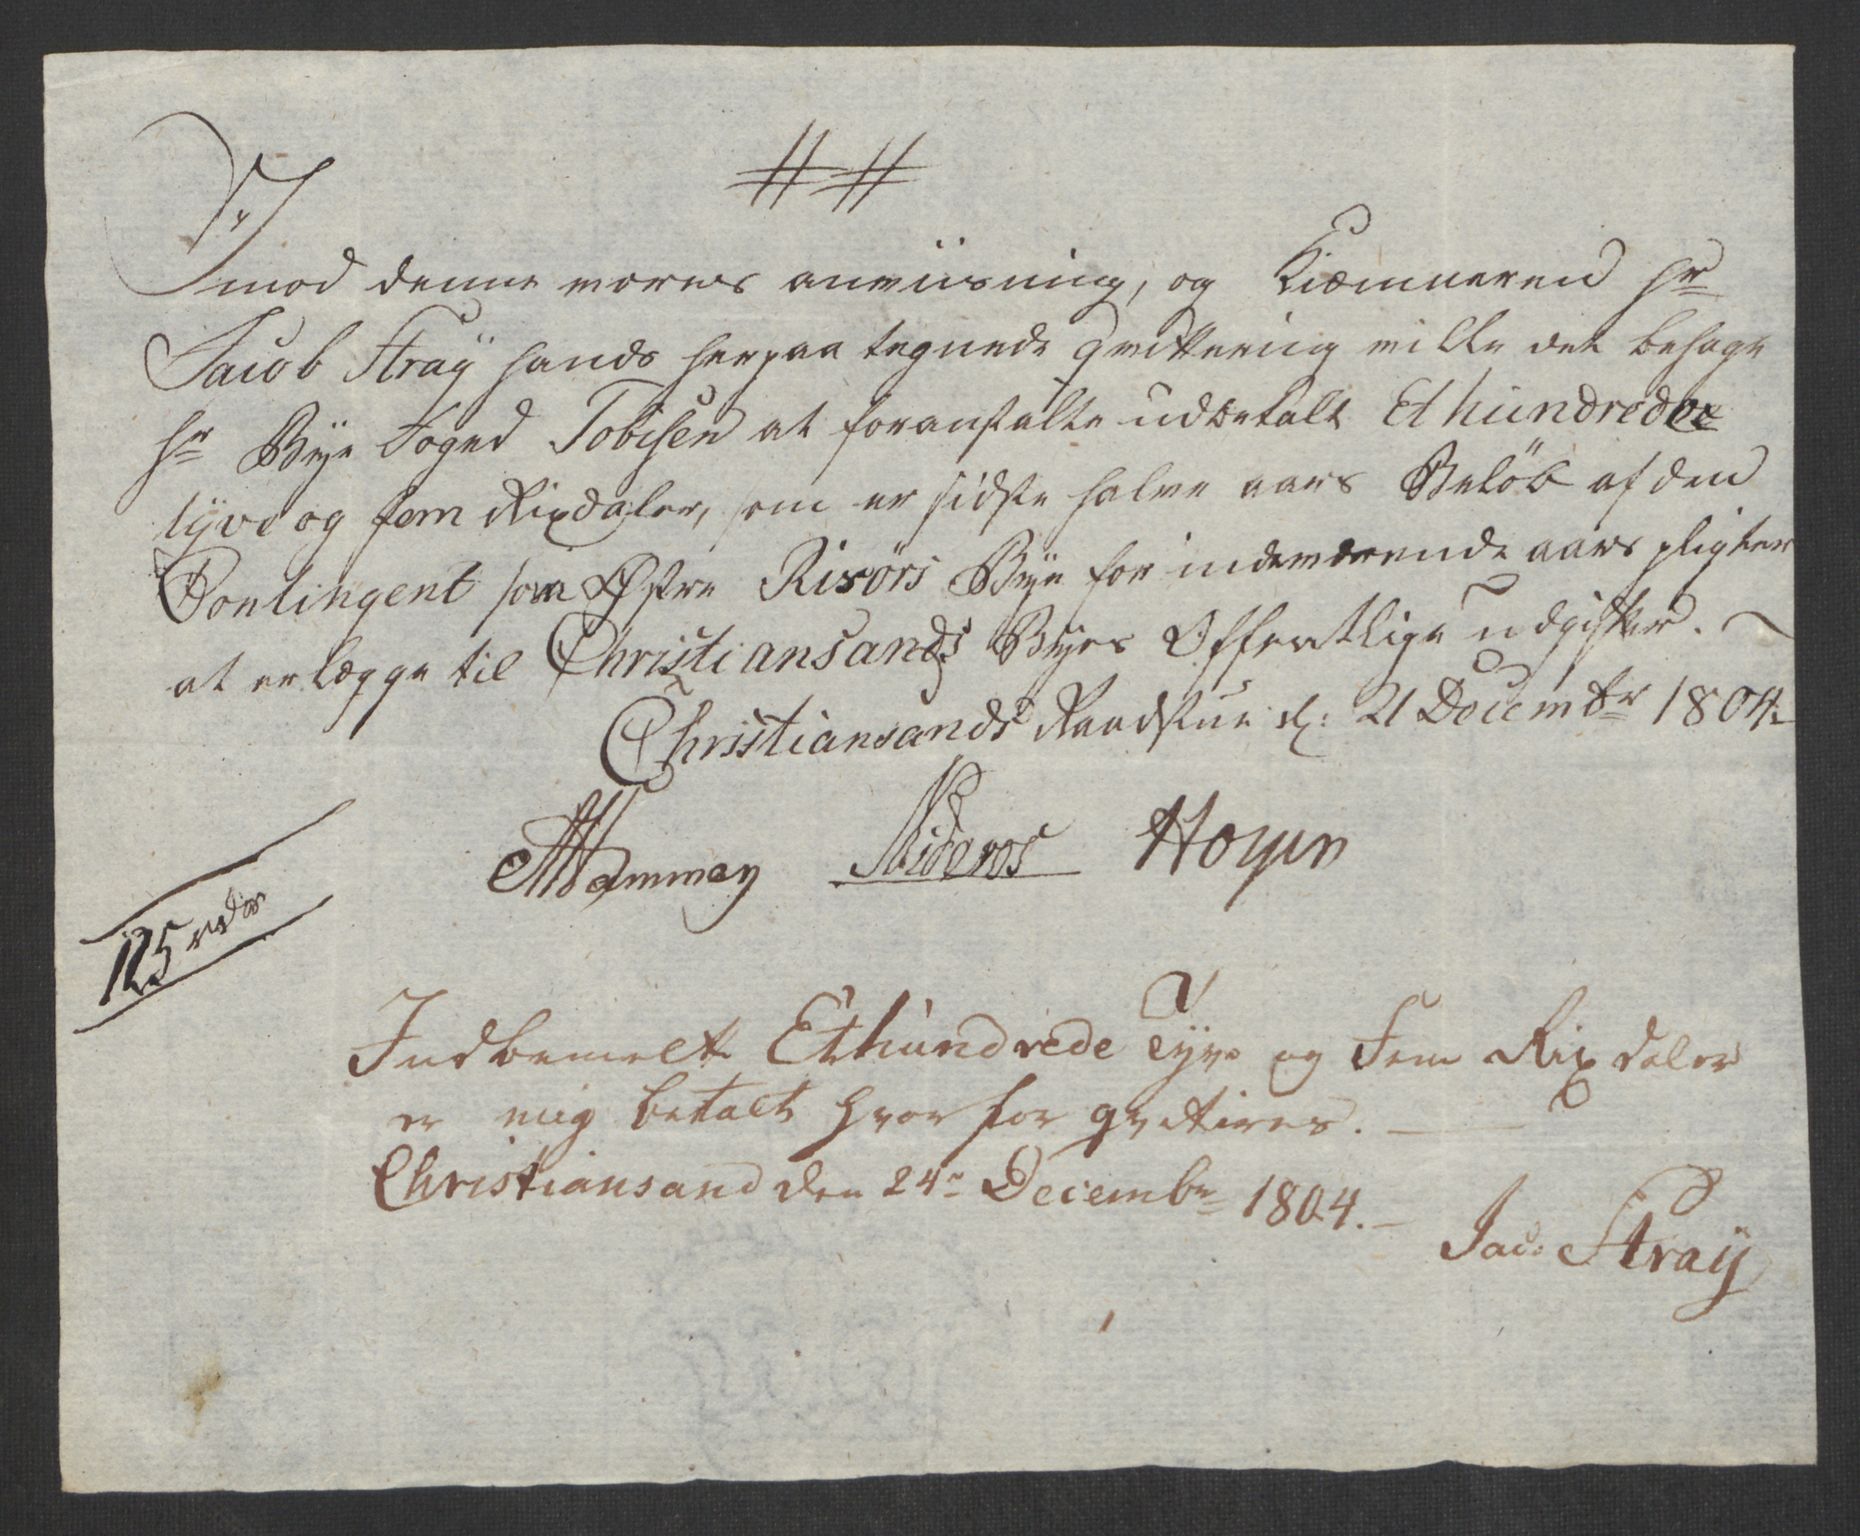 Imod denne vores anviisning, og Kiæmneren Hr
Jacob Stray hands herpaa tegnede qvittering ville det behage
Hr Bye Foged Tobisen at foranstalte udbetalt Et hundrede
tyve og fem Rixdaler, som er sidste halve aars Beløb af den
Contingent som Østre Risörs Bye for indeværende aars pligter
at erlægge til Christiansands Byes Offentlige udgifter.
Christiansands Raadstue d: 21 Decembr 1804.
Hammer Nideros Hoyer
125 rdr
Indbemelte Et hundrede Tyve og Fem Rixdaler
er mig betalt hvorfor qvitteres.
Christiansand den 24de Decembr 1804.
Jac: Stray